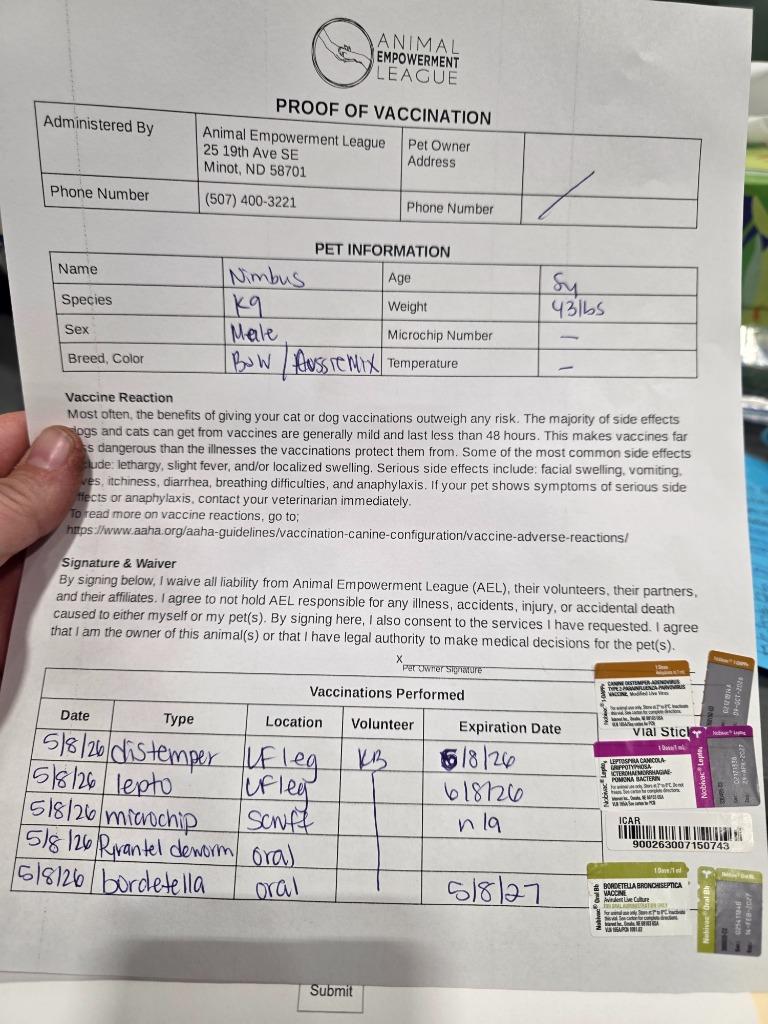 ANIMAL
EMPOWERMENT
LEAGUE
PROOF OF VACCINATION
Administered By
Animal Empowerment League
25 19th Ave SE
Minot, ND 58701
Pet Owner
Address
Phone Number
(507) 400-3221
Phone Number
PET INFORMATION
Name Nimbus Age 5y
Species K9 Weight 43lbs
Sex Male Microchip Number —
Breed, Color B&W / Aussie Mix Temperature —
Vaccine Reaction
Most often, the benefits of giving your cat or dog vaccinations outweigh any risk. The majority of side effects
dogs and cats can get from vaccines are generally mild and last less than 48 hours. This makes vaccines far
dangerous than the illnesses the vaccinations protect them from. Some of the most common side effects
lethargy, slight fever, and/or localized swelling. Serious side effects include: facial swelling, vomiting,
itchiness, diarrhea, breathing difficulties, and anaphylaxis. If your pet shows symptoms of serious side
or anaphylaxis, contact your veterinarian immediately.
To read more on vaccine reactions, go to;
https://www.aaha.org/aaha-guidelines/vaccination-canine-configuration/vaccine-adverse-reactions/
Signature & Waiver
By signing below, I waive all liability from Animal Empowerment League (AEL), their volunteers, their partners,
and their affiliates. I agree to not hold AEL responsible for any illness, accidents, injury, or accidental death
caused to either myself or my pet(s). By signing here, I also consent to the services I have requested. I agree
that I am the owner of this animal(s) or that I have legal authority to make medical decisions for the pet(s).
X
Pet Owner Signature
Vaccinations Performed
Date Type Location Volunteer Expiration Date
5/8/26 distemper LF leg KB 6/8/26
5/8/26 lepto LF leg 6/8/26
5/8/26 microchip scruff n/a
5/8/26 Pyrantel deworm oral
5/8/26 bordetella oral 5/8/27
CANINE DISTEMPER-ADENOVIRUS
TYPE 2-PARAINFLUENZA-PARVOVIRUS
VACCINE, Modified Live Virus
09-OCT-2026
Vial Stick
1 Dose/1 mL
LEPTOSPIRA CANICOLA-
GRIPPOTYPHOSA-
ICTEROHAEMORRHAGIAE-
POMONA BACTERIN
Nobivac® Lepto
ICAR
900263007150743
1 Dose/1 ml
BORDETELLA BRONCHISEPTICA
VACCINE
Avirulent Live Culture
FOR ORAL ADMINISTRATION ONLY
Nobivac® Oral Bb
Nobivac® Oral Bb
14-FEB-2027
Submit